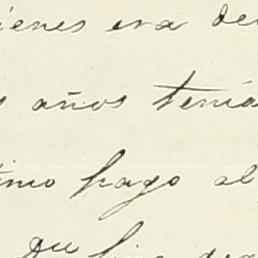 ienes era de
s años tenía
timo pago al
que